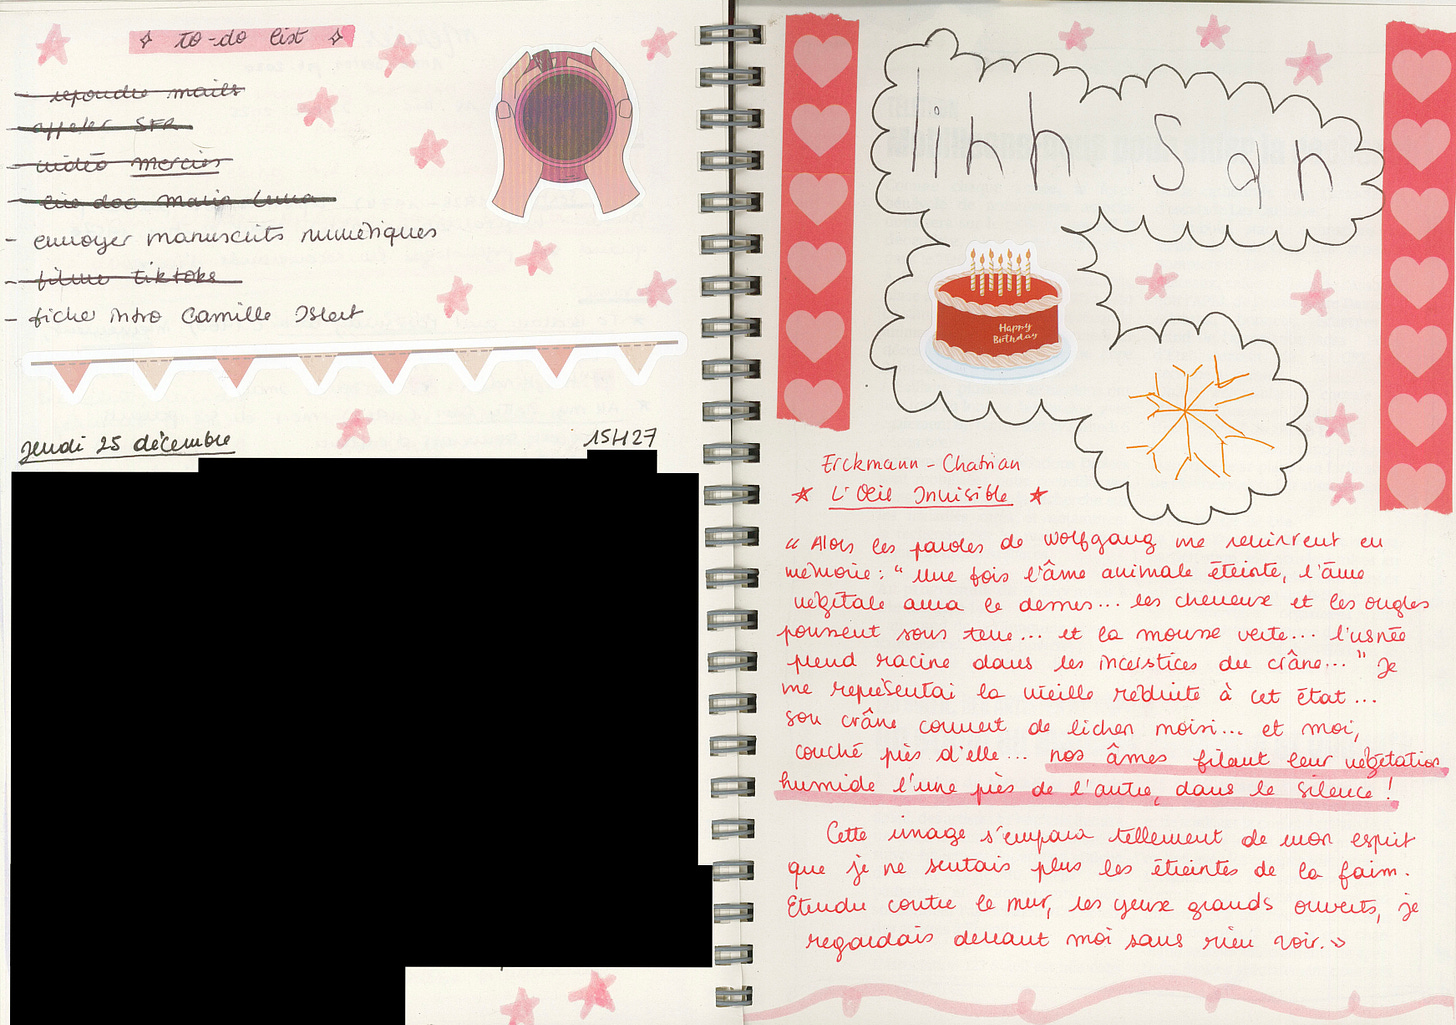 to-do list
- repondre mails
- appeler SFR
- vidéo Mercier
- lire doc Maria-Luna
- envoyer manuscrits numériques
- filmer tiktoks
- fiche intro Camille Islert
jeudi 25 décembre
15H27
linh San
Happy
Birthday
Erckmann-Chatrian
L'Oeil Invisible
« Alors les paroles de Wolfgang me revinrent en
mémoire : " Une fois l'âme animale éteinte, l'âme
végétale aura le dessus... les cheveux et les ongles
poussent sous terre... et la mousse verte... l'usnée
prend racine dans les interstices du crâne... " Je
me représentai la vieille réduite à cet état...
son crâne couvert de lichen moisi... et moi,
couché près d'elle... nos âmes filant leur végétation
humide l'une près de l'autre, dans le silence !
Cette image s'empara tellement de mon esprit
que je ne sentais plus les étreintes de la faim.
Etendu contre le mur, les yeux grands ouverts, je
regardais devant moi sans rien voir. »